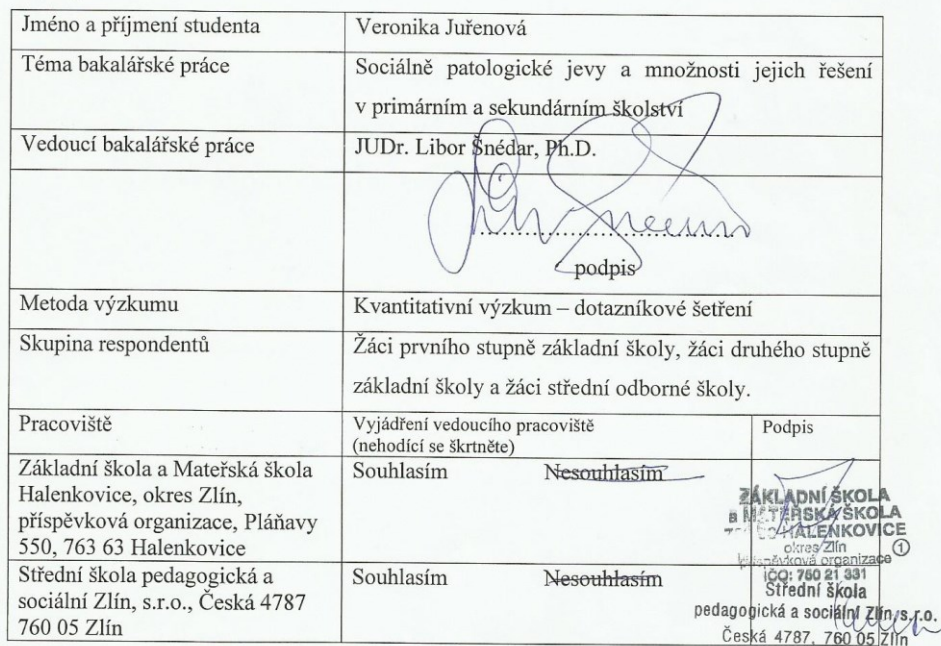 Jméno a příjmení studenta
Veronika Juřenová
Téma bakalářské práce
Sociálně patologické jevy a množnosti jejich řešení
v primárním a sekundárním školství
Vedoucí bakalářské práce
JUDr. Libor Šnédar, Ph.D.
podpis
Metoda výzkumu
Kvantitativní výzkum – dotazníkové šetření
Skupina respondentů
Žáci prvního stupně základní školy, žáci druhého stupně
základní školy a žáci střední odborné školy.
Pracoviště
Vyjádření vedoucího pracoviště
(nehodící se škrtněte)
Podpis
Základní škola a Mateřská škola
Halenkovice, okres Zlín,
příspěvková organizace, Pláňavy
550, 763 63 Halenkovice
Souhlasím Nesouhlasím
ZÁKLADNÍ ŠKOLA
a MATEŘSKÁ ŠKOLA
HALENKOVICE
okres Zlín
1
příspěvková organizace
IČO: 750 21 331
Střední škola pedagogická a
sociální Zlín, s.r.o., Česká 4787
760 05 Zlín
Souhlasím Nesouhlasím
Střední škola
pedagogická a sociální Zlín, s.r.o.
Česká 4787, 760 05 Zlín